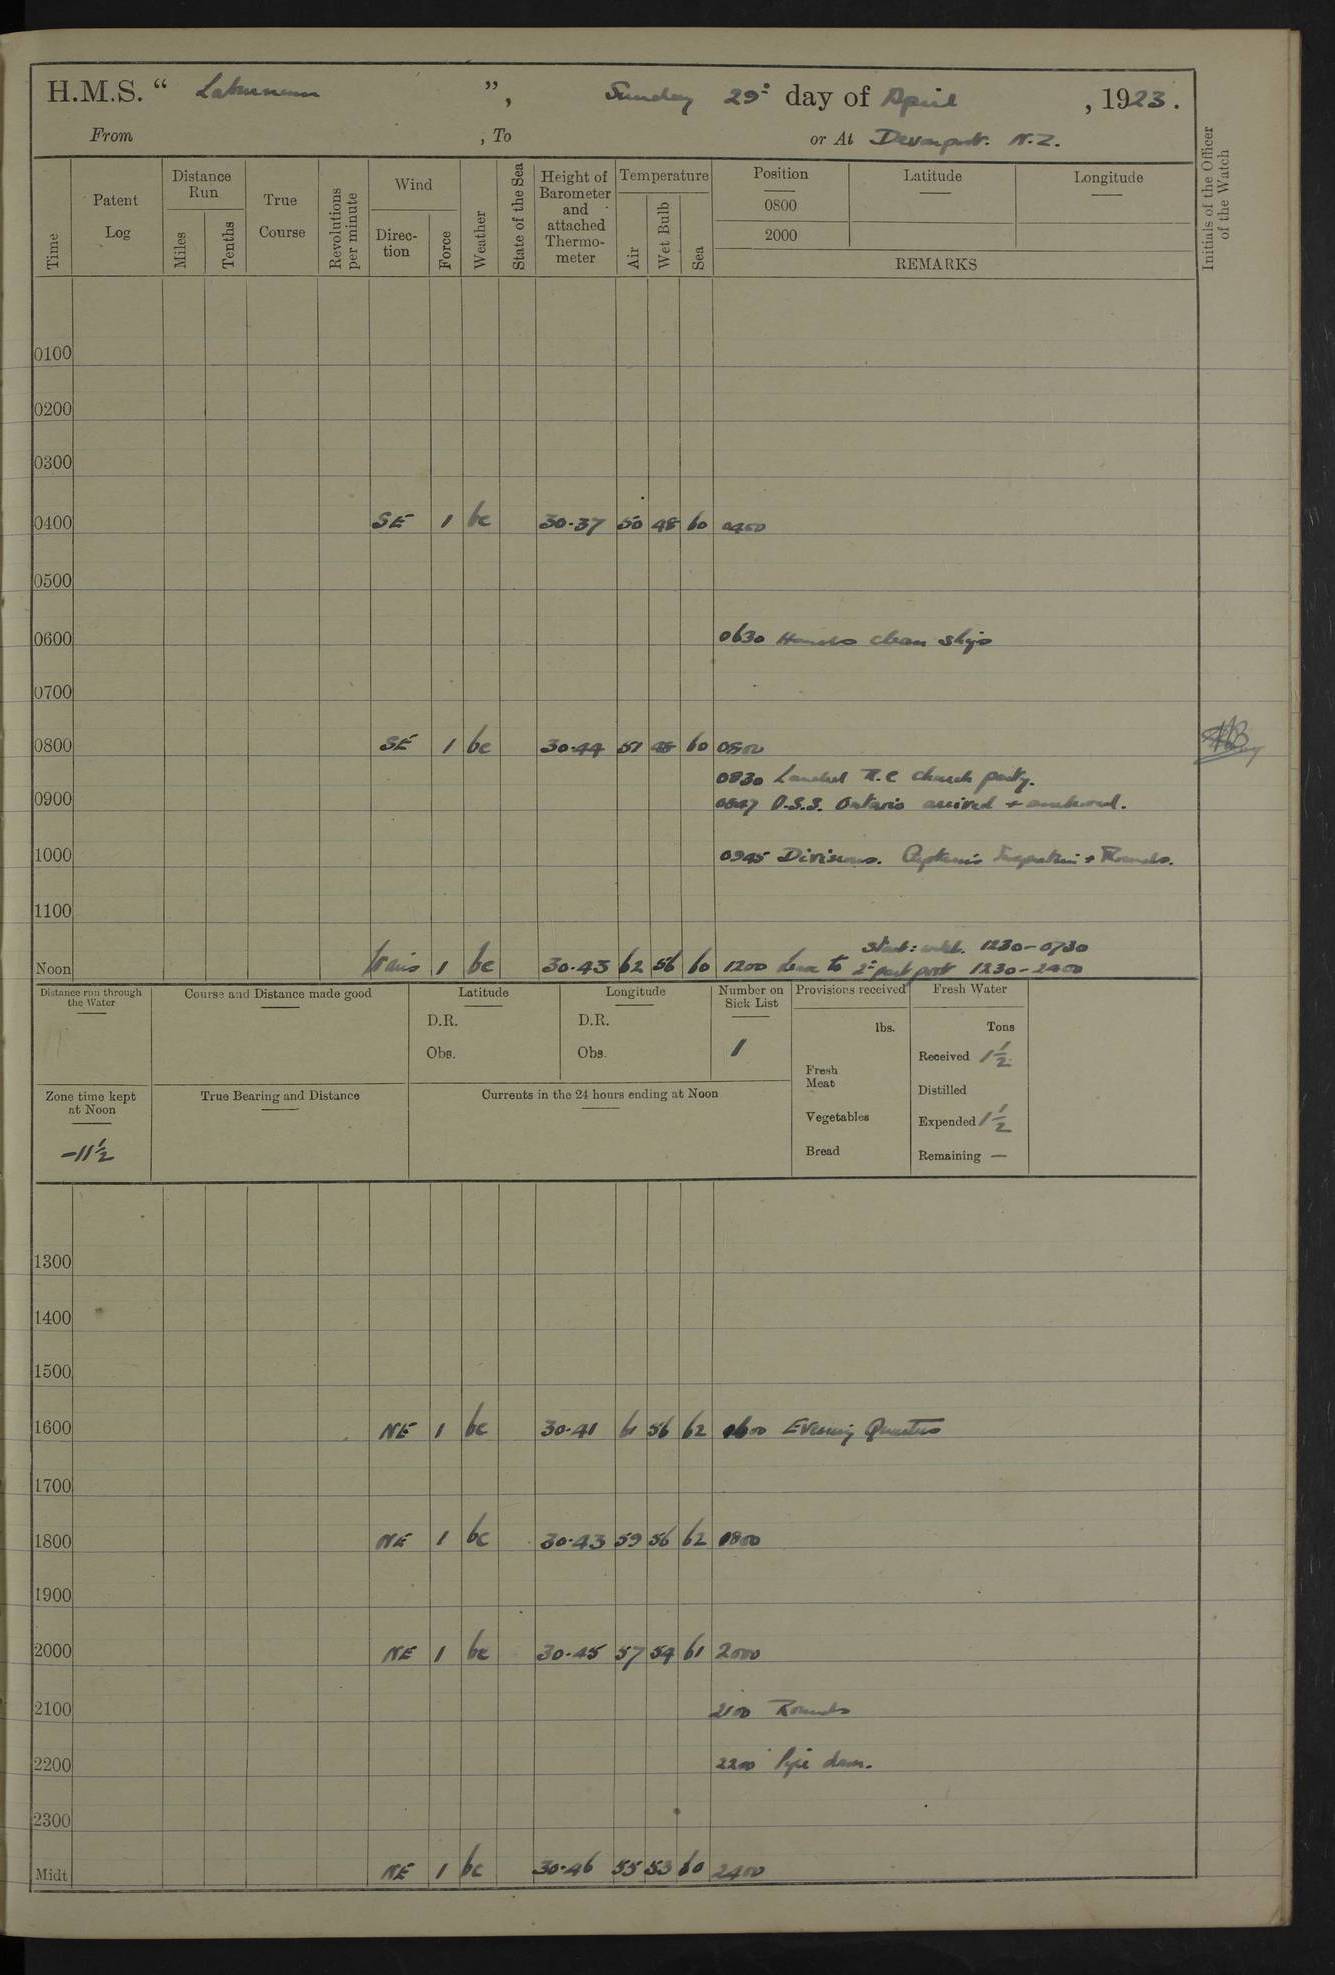 H.M.S. “ Laburnum ”, Sunday 29: day of April , 1923.
From , To or At Devonport. N.Z.
Time
Patent Log
Distance Run
Miles
Tenths
True Course
Revolutions per minute
Wind
Direc-tion
Force
Weather
State of the Sea
Height of Barometer and attached Thermo-meter
Temperature
Air
Wet Bulb
Sea
Position
0800
2000
Latitude
Longitude
REMARKS
Initials of the Officer of the Watch
0100
0200
0300
0400 SE 1 bc 30.37 50 48 60 0400
0500
0600 0630 Hands clean ship
0700
0800 SE 1 bc 30.44 51 48 60 0800
0830 Landed R.C church party.
0900 0847 O.S.S. Ontario arrived + anchored.
1000 0945 Divisions. Captain's Inspection + Rounds.
1100
1230-0730
Noon 1 bc 30.43 62 56 60 1200 Leave to 2: part port 1230-2400
Distance run through the Water
Course and Distance made good
Latitude
D.R.
Obs.
Longitude
D.R.
Obs.
Number on Sick List
1
Provisions received
lbs.
Fresh Meat
Vegetables
Bread
Fresh Water
Tons
Received 1½
Distilled
Expended 1½
Remaining —
Zone time kept at Noon
-11½
True Bearing and Distance
Currents in the 24 hours ending at Noon
1300
1400
1500
1600 NE 1 bc 30.41 61 56 62 1600 Evening Quarters
1700
1800 NE 1 bc 30.43 59 56 62 1800
1900
2000 NE 1 bc 30.45 57 54 61 2000
2100 2100 Rounds
2200 2200 Pipe down.
2300
Midt NE 1 bc 30.46 55 53 60 2400